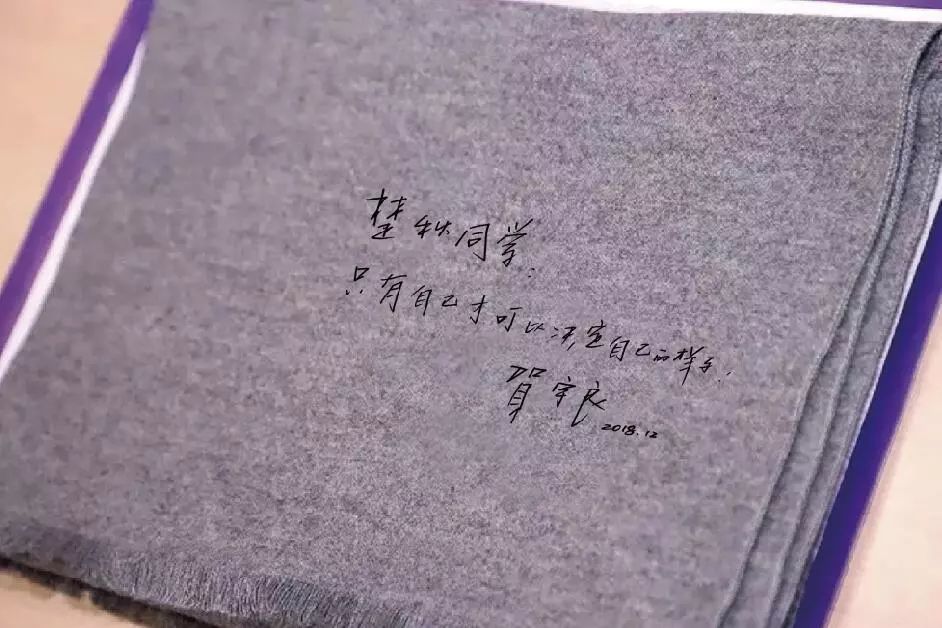 楚秋同学:
只有自己才可以决定自己的样子.
贺宇良 2018.12